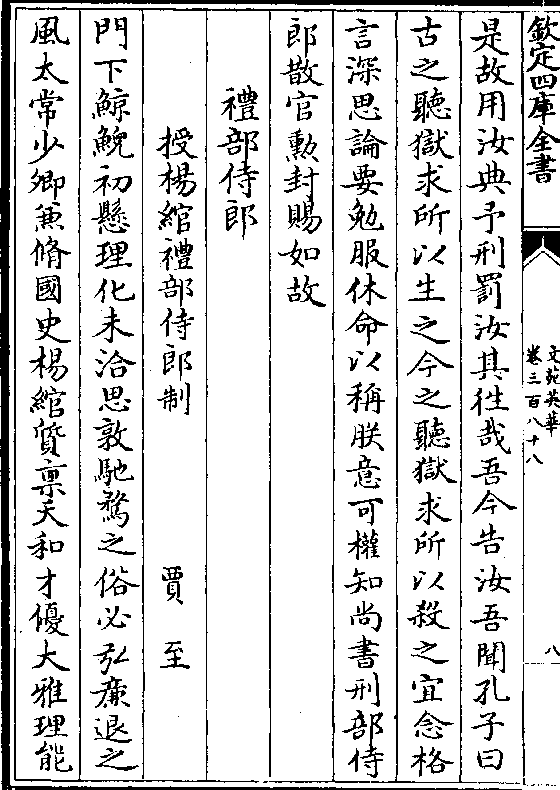 欽定四庫全書
文苑英華
卷三百八十八
八
是故用汝典予刑罰汝其徃哉吾今告汝吾聞孔子曰
古之聽獄求所以生之今之聽獄求所以殺之宜念格
言深思論要勉服休命以稱朕意可權知尚書刑部侍
郎散官勲封賜如故
禮部侍郎
授楊綰禮部侍郎制 賈至
門下鯨鯢初懸理化未洽思敦馳騖之俗必弘廉退之
風太常少卿兼脩國史楊綰質禀天和才優大雅理能